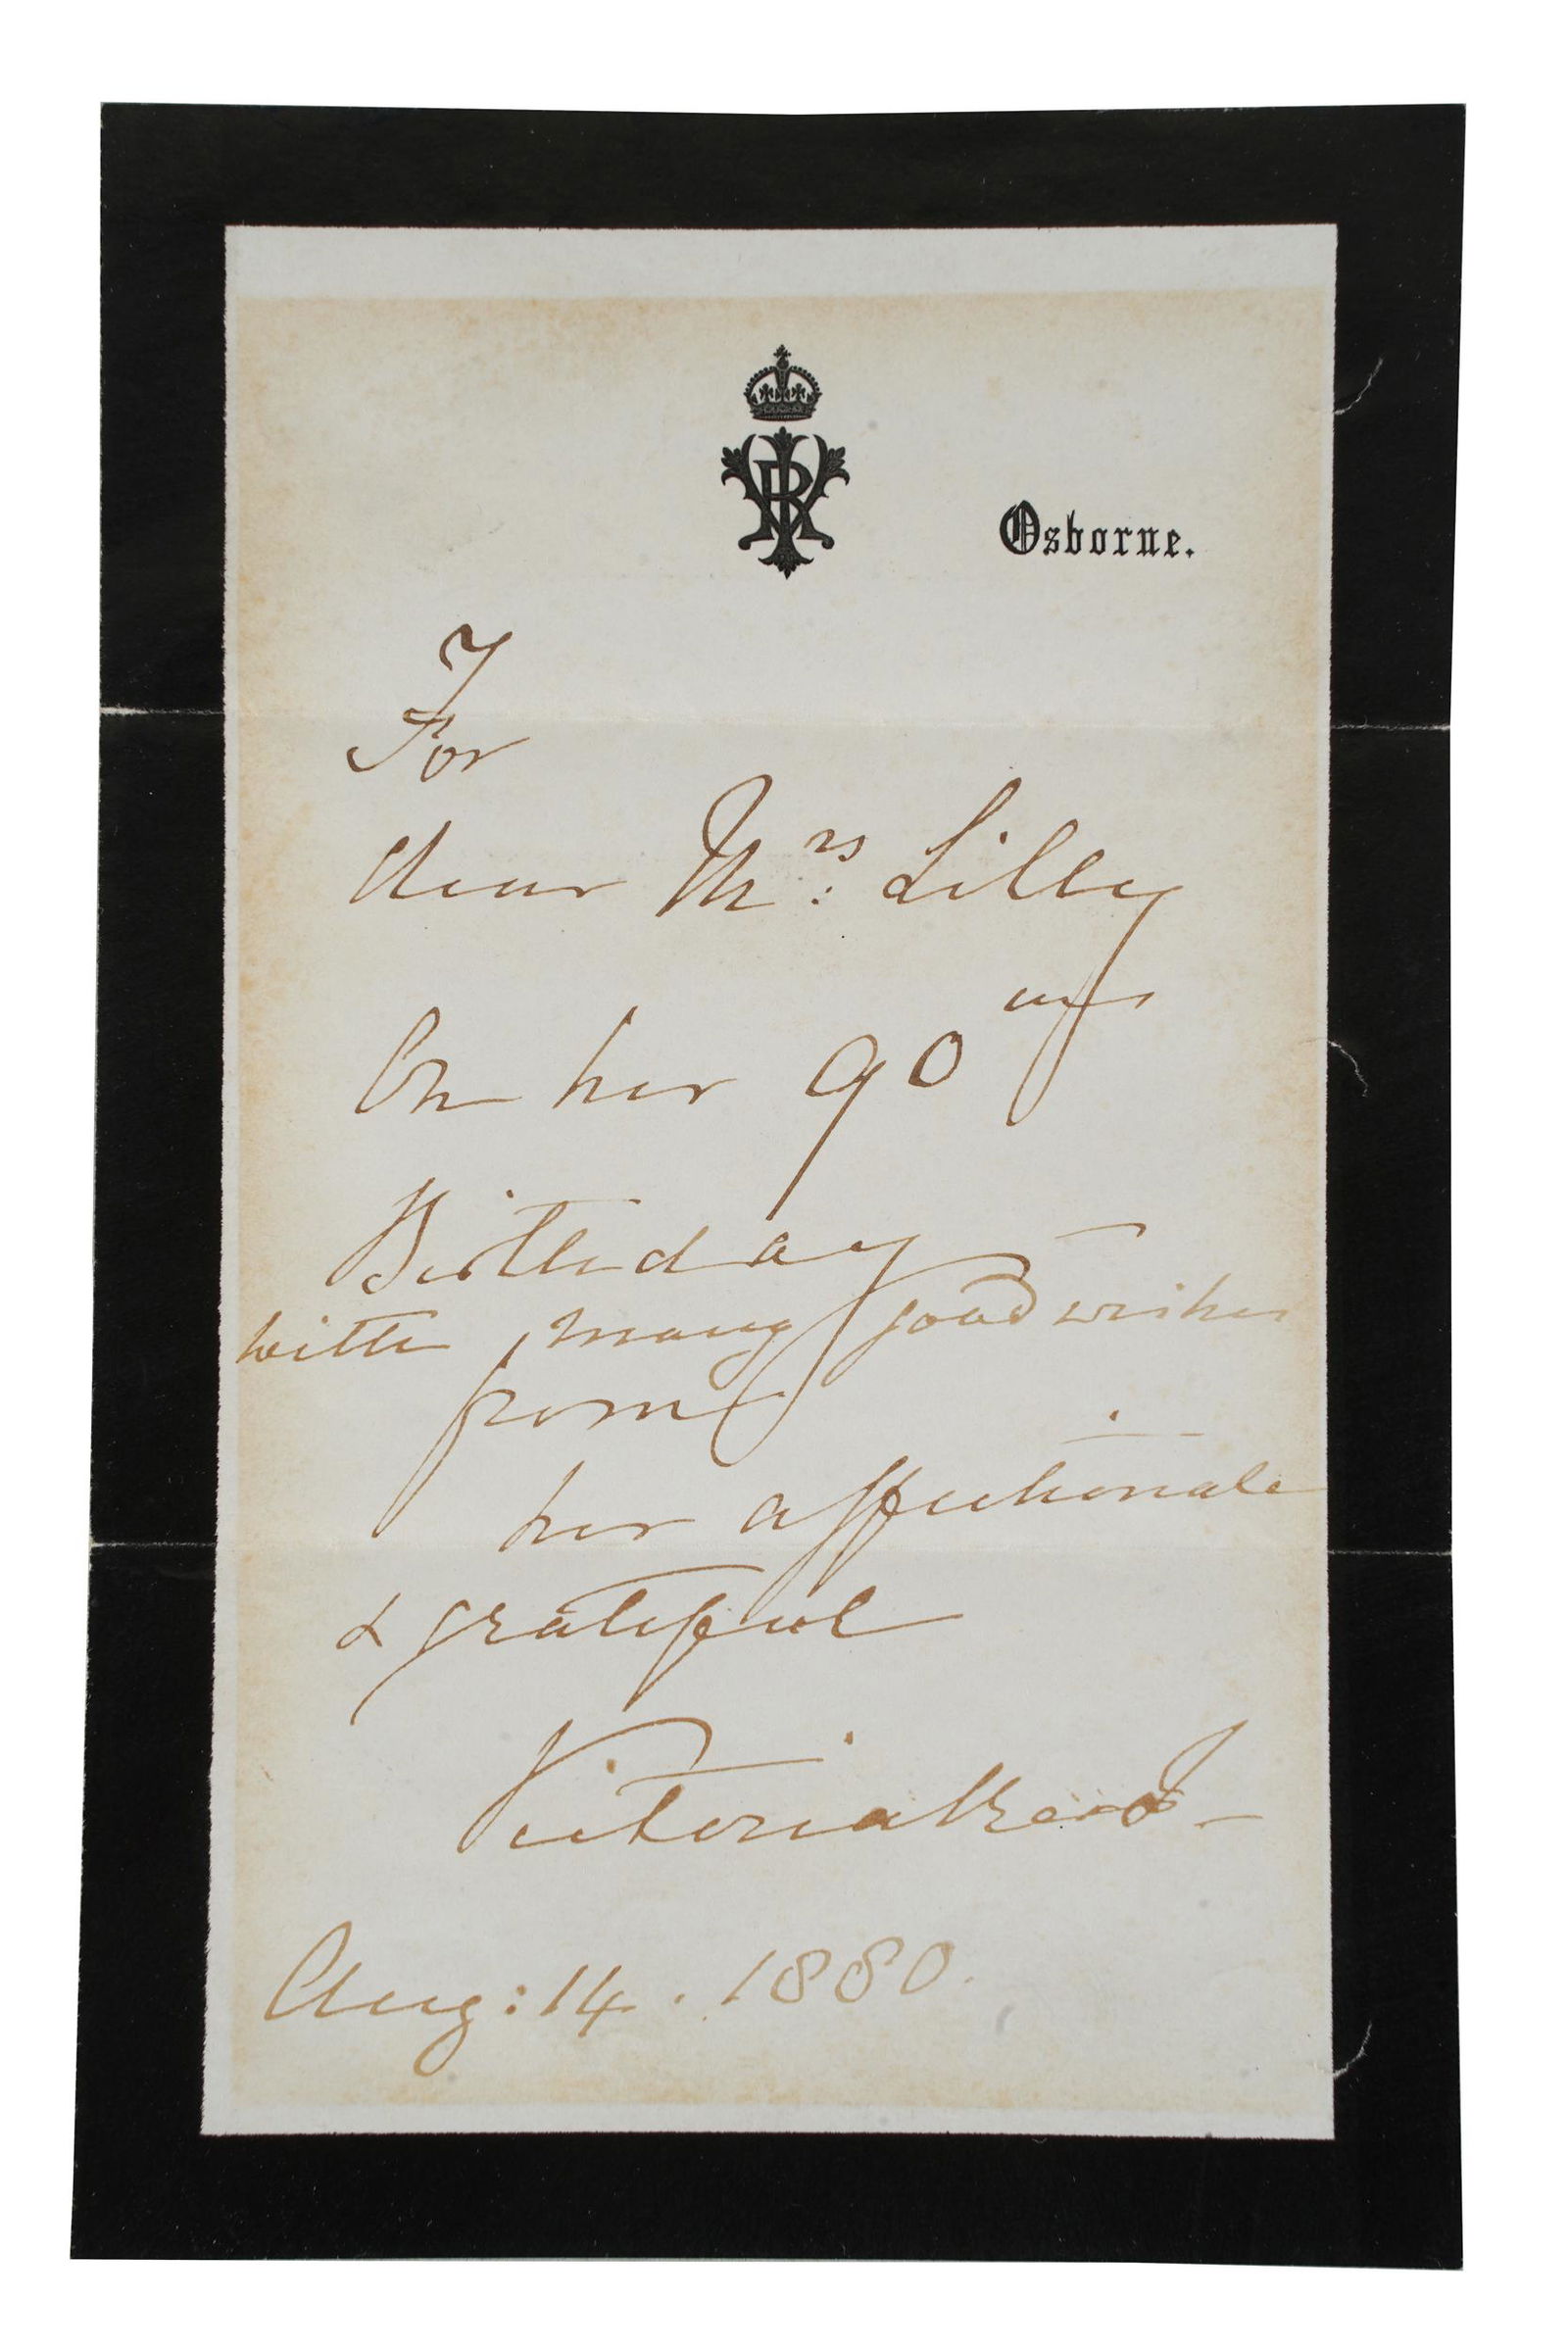 VRI
Osborne.
For
dear Mrs: Lilly
On her 90th
Birthday
with many good wishes
from
her affectionate
& grateful
Victoria R and I
Aug: 14. 1880.